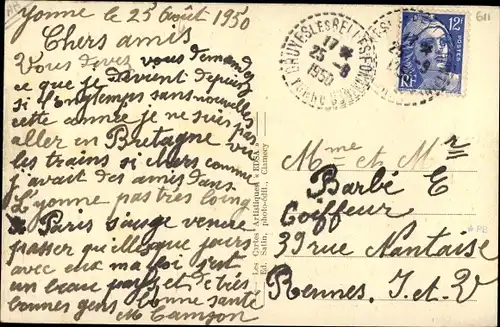 Yonne le 25 Août 1950
Chers amis
Vous devez vous demandez
ce que je devient depuis
si longtemps sans nouvelles
cette année je ne suis pas
aller en Bretagne vu
les trains si chers comme
j'avait des amis dans
L'yonne pas très loing
Paris s'auge venue
passer quillesque jours
avec eux ma foi s'est
un beau pays et des très
bonnes gens bonne santé
M
Les Cartes Artistiques "EDSA"
Ed. Satin, photo-édit., Clamecy
DRUYES LES BELLES FONTAINES
17 *
25 -8
1950
12F
POSTES
RF
Mme et Mr
Barbé E
Coiffeur
39 rue Nantaise
Rennes. I. et V